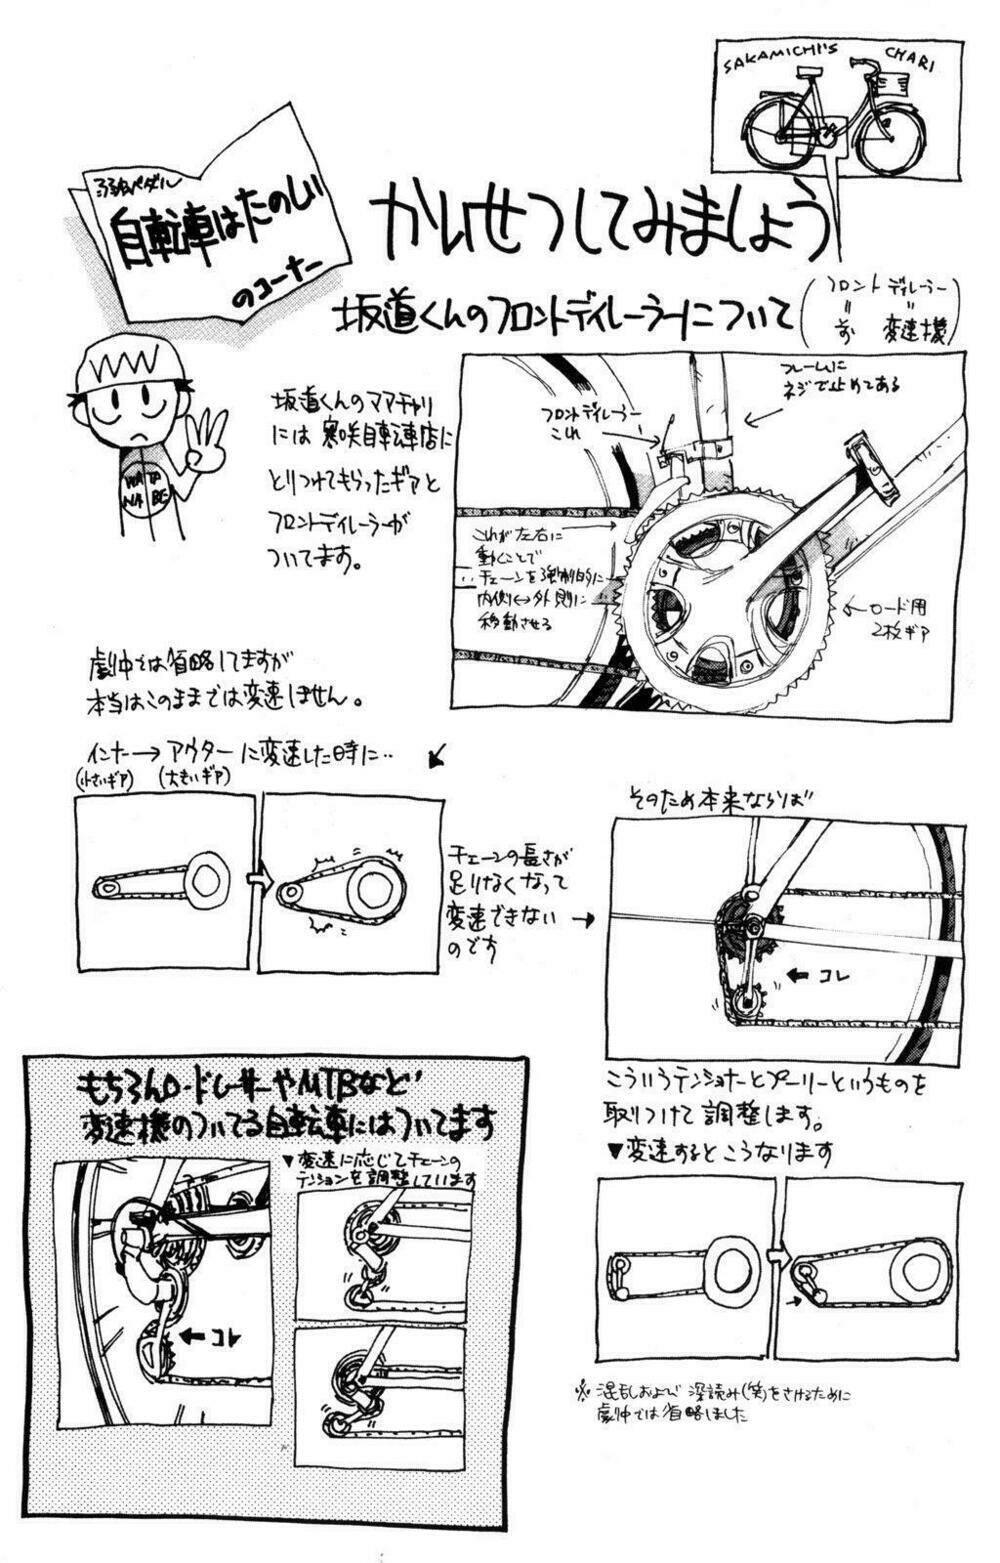 SAKAMICHI'S CHARI
弱虫ペダル
自転車はたのしい
のコーナー
かいせつしてみましょう
坂道くんのフロントディレーラーについて
フロント ディレーラー
〃 〃
前 変速機
WATA
NABE
坂道くんのママチャリ
には寒咲自転車店に
とりつけてもらったギアと
フロントディレーラーが
ついてます。
フロントディレーラー
これ
フレームに
ネジで止めてある
これが左右に
動くことで
チェーンを強制的に
内側↔外側に
移動させる
←ロード用
2枚ギア
劇中では省略してますが
本当はこのままでは変速しません。
インナー→アウターに変速した時に‥
(小さいギア) (大きいギア)
チェーンの長さが
足りなくなって
変速できない→
のです
そのため本来ならば
←コレ
こういうテンショナーとプーリーというものを
取りつけて調整します。
▼変速するとこうなります
※混乱および深読み(笑)をさけるために
劇中では省略しました
もちろんロードレーサーやMTBなど
変速機のついてる自転車にはついてます
▼変速に応じてチェーンの
テンションを調整しています
←コレ